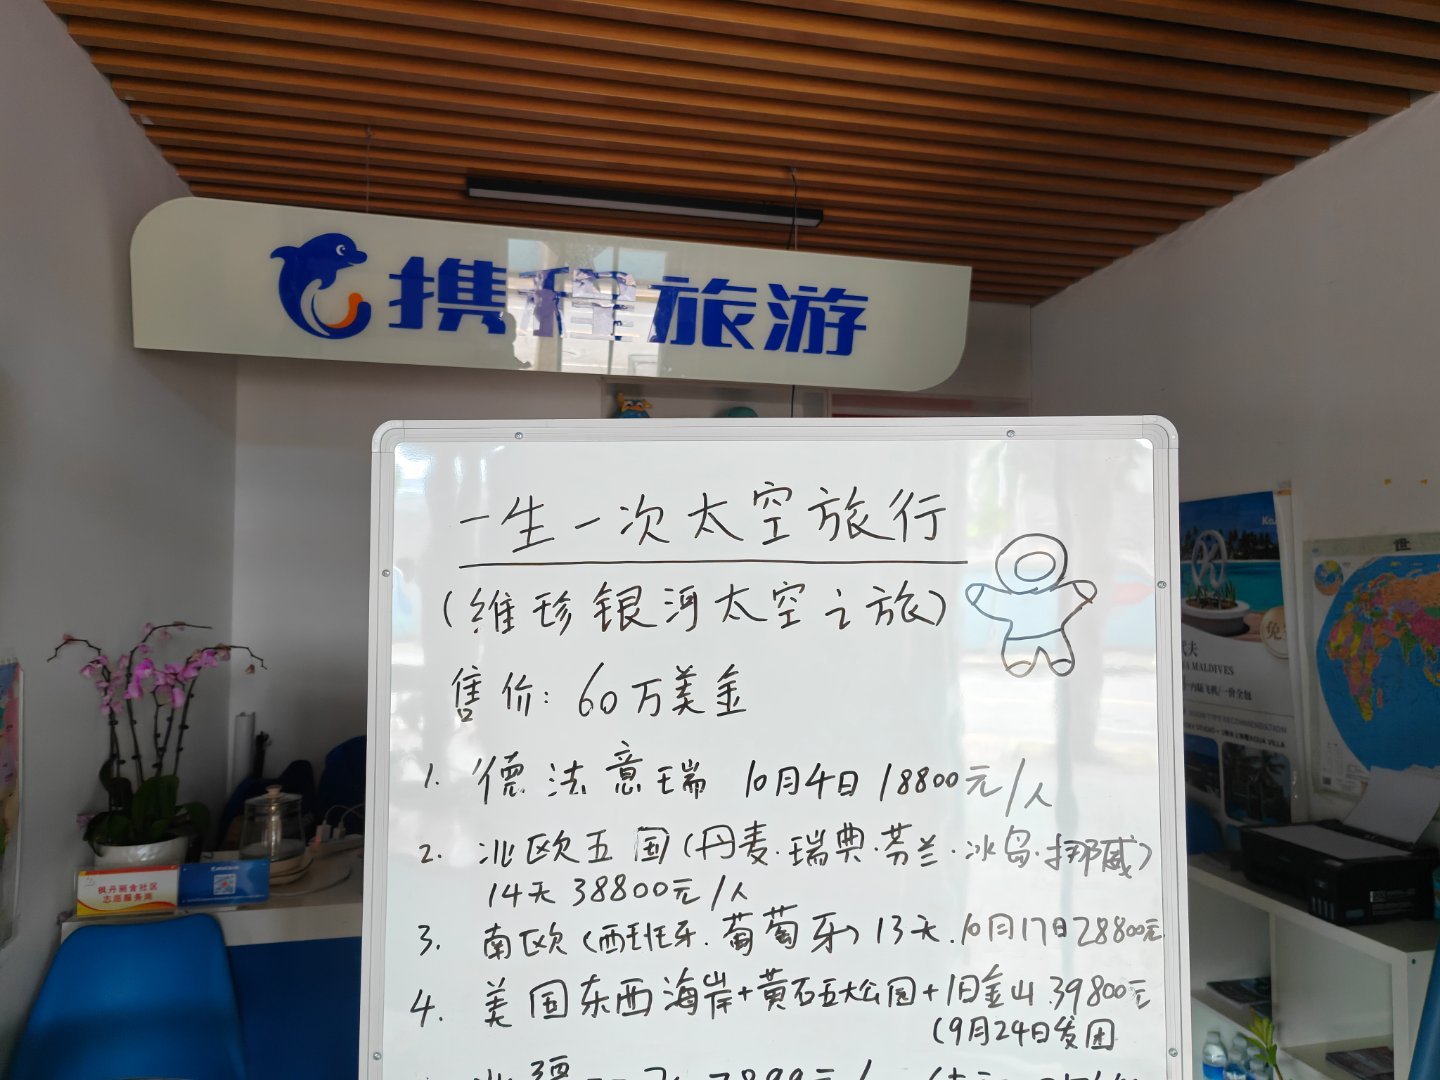 携程旅游
一生一次太空旅行
(维珍银河太空之旅)
售价: 60万美金
1. 德法意瑞 10月4日 18800元/人
2. 北欧五国(丹麦·瑞典·芬兰·冰岛·挪威)
14天 38800元/人
3. 南欧(西班牙·葡萄牙) 13天.10月17日28800元
4. 美国东西海岸+黄石五大公园+旧金山 39800元
(9月24日发团
枫丹丽舍社区
志愿服务岗
世
MALDIVES